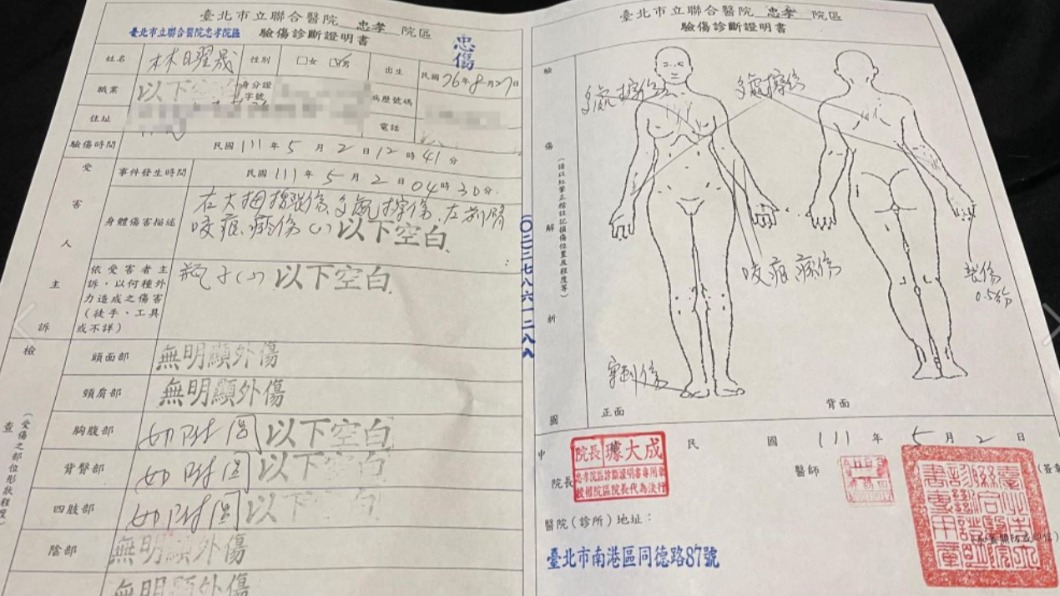 臺北市立聯合醫院 忠孝 院區
臺北市立聯合醫院忠孝院區
驗傷診斷證明書
忠傷
姓名 林曜晟 性別 □女 ☑男 出生 民國76年8月27日
職業 以下空 身分證字號 病歷號碼
住址 電話
驗傷時間 民國 111 年 5 月 2 日 12 時 41 分
受害人主訴
事件發生時間 民國 111 年 5 月 2 日 04 時 30 分
身體傷害描述 右大拇指 傷、多處擦傷、左
咬痕 瘀傷 以下空白
依受害者主訴,以何種外力造成之傷害(徒手、工具或不詳) 瓶子 以下空白
檢查
(受傷之部位形狀程度)
頭面部 無明顯外傷
頸肩部 無明顯外傷
胸腹部 如附圖 以下空白
背臀部 如附圖 以下空白
四肢部 如附圖 以下空白
陰部 無明顯外傷
無明顯外傷
〇二二七八六一二八八
臺北市立聯合醫院 忠孝 院區
驗傷診斷證明書
驗傷解析圖
多處擦傷
多處擦傷
咬痕瘀傷
裂傷
0.5公分
穿刺傷
正面
背面
中 民 國 111 年 5 月 2 日
院長
院長 璩大成
忠孝院區診斷證明書專用章
授權院區院長代為決行
醫師
醫院(診所)地址:
臺北市南港區同德路87號